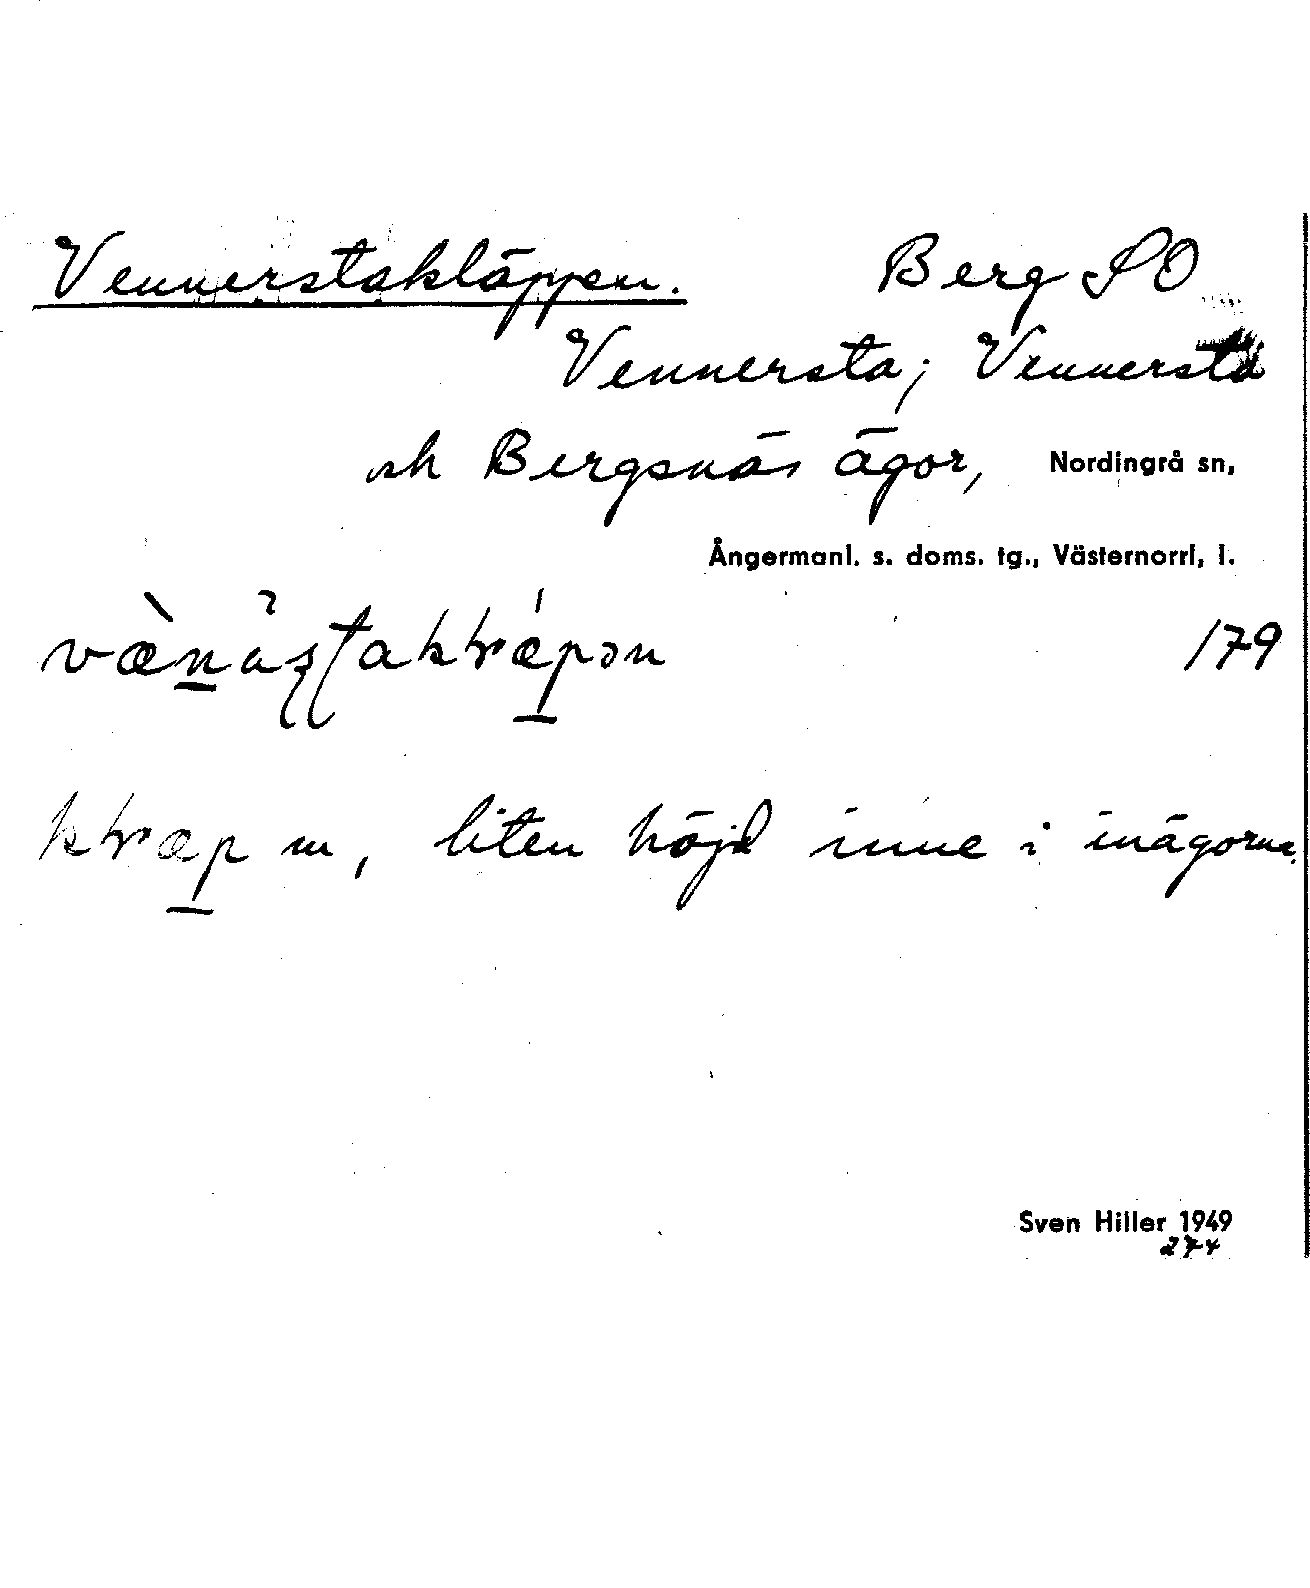 Vennerstakläppen. Berg SO
Vennersta; Vennersta
och Bergsnäs ägor, Nordingrå sn,
Ångermanl. s. doms. tg., Västernorrl. l.
179
m, liten höjd inne i inägorna.
Sven Hiller 1949
274